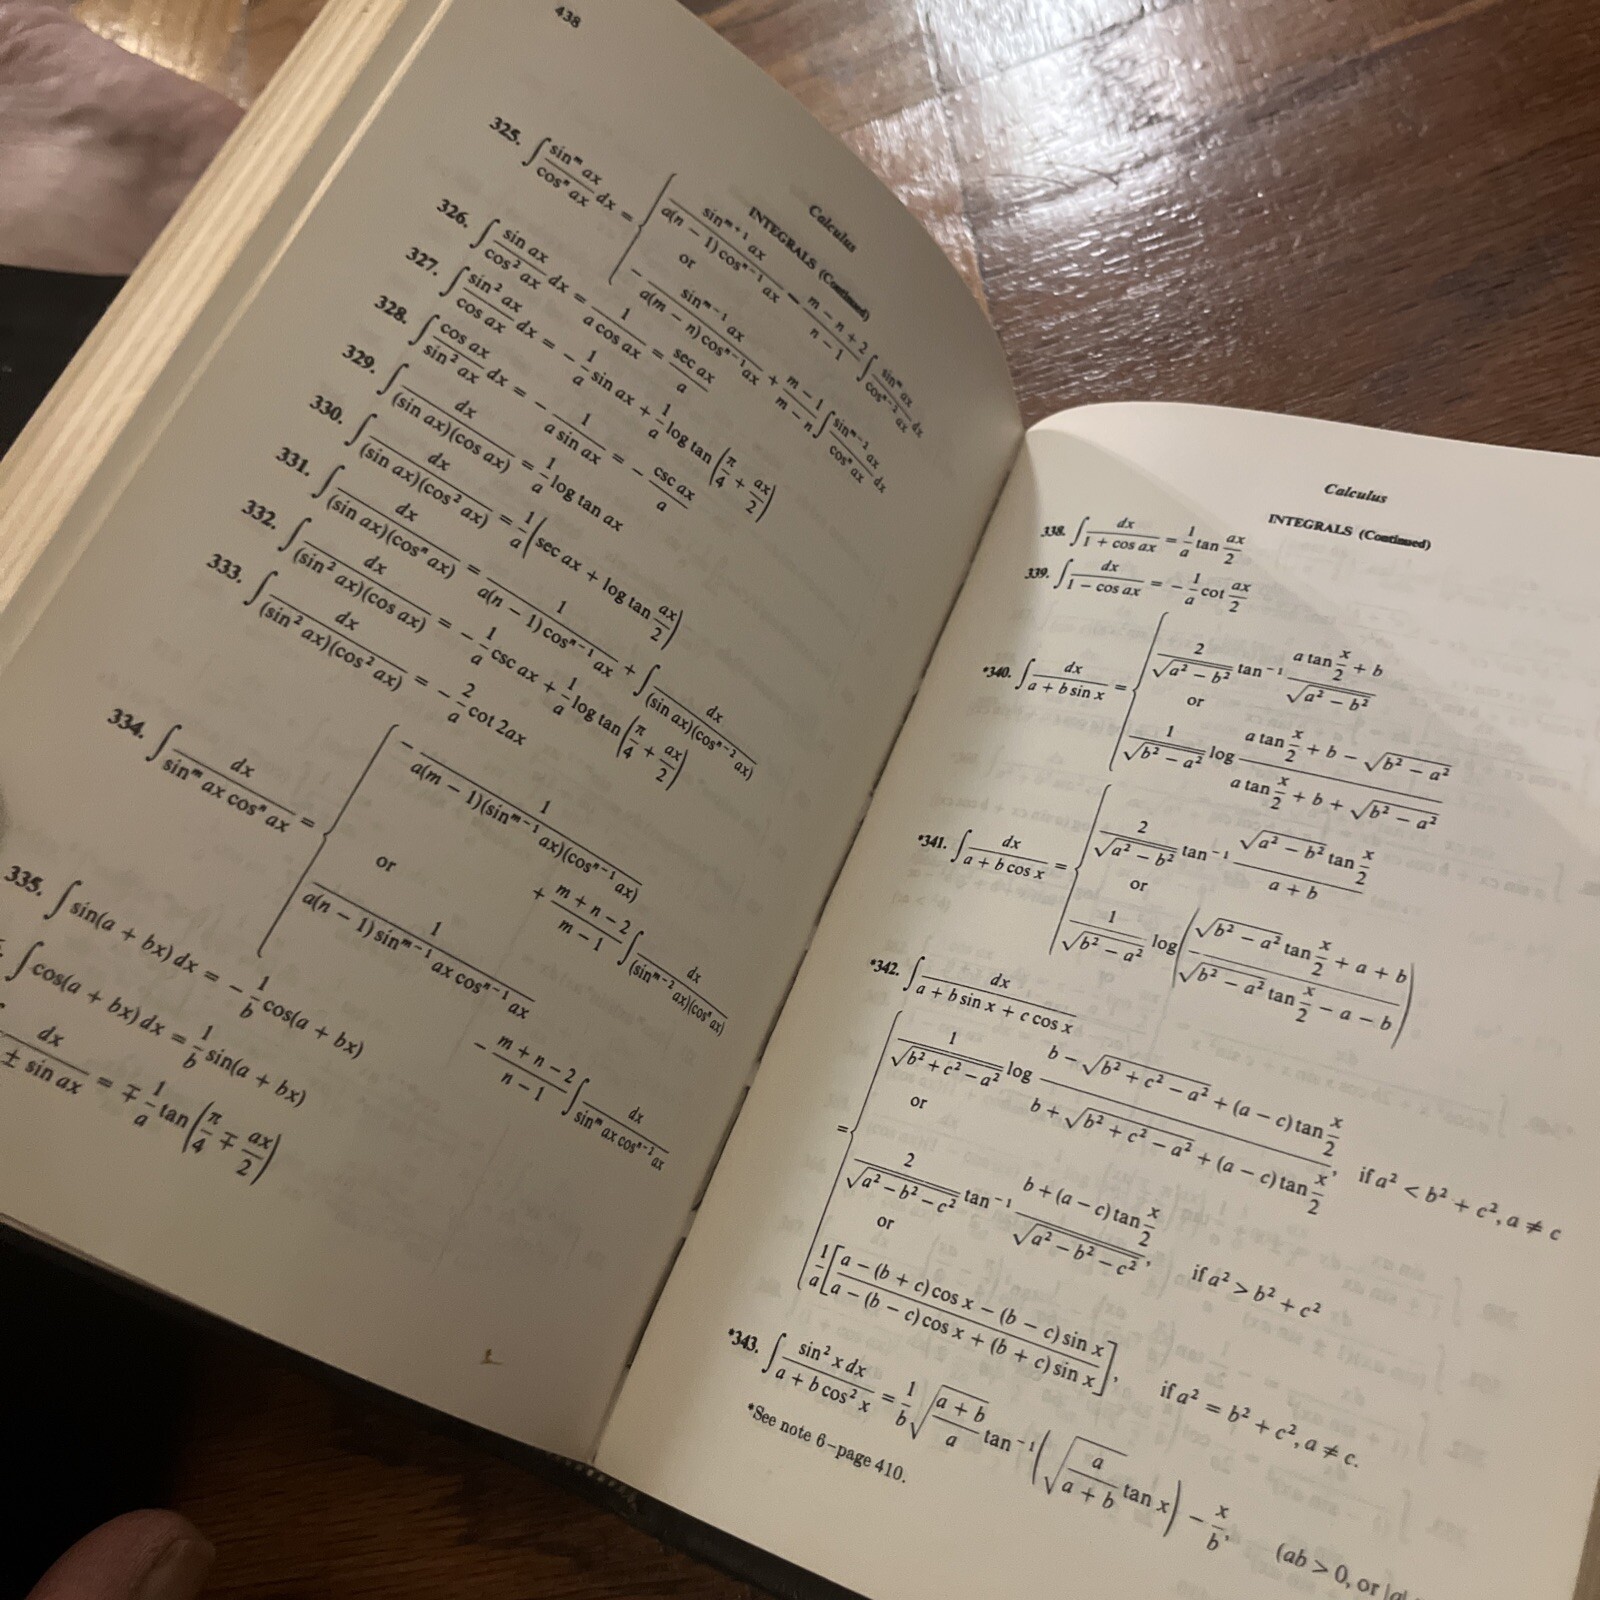 438
Calculus
INTEGRALS (Continued)
325. ∫ sinᵐ ax / cosⁿ ax dx = { sinᵐ⁺¹ ax / a(n − 1) cosⁿ⁻¹ ax − (m − n + 2)/(n − 1) ∫ sinᵐ ax / cosⁿ⁻² ax dx
or
− sinᵐ⁻¹ ax / a(m − n) cosⁿ⁻¹ ax + (m − 1)/(m − n) ∫ sinᵐ⁻² ax / cosⁿ ax dx
326. ∫ sin ax / cos² ax dx = 1 / a cos ax = sec ax / a
327. ∫ sin² ax / cos ax dx = − 1/a sin ax + 1/a log tan (π/4 + ax/2)
328. ∫ cos ax / sin² ax dx = − 1 / a sin ax = − csc ax / a
329. ∫ dx / (sin ax)(cos ax) = 1/a log tan ax
330. ∫ dx / (sin ax)(cos² ax) = 1/a (sec ax + log tan ax/2)
331. ∫ dx / (sin ax)(cosⁿ ax) = 1 / a(n − 1) cosⁿ⁻¹ ax + ∫ dx / (sin ax)(cosⁿ⁻² ax)
332. ∫ dx / (sin² ax)(cos ax) = − 1/a csc ax + 1/a log tan (π/4 + ax/2)
333. ∫ dx / (sin² ax)(cos² ax) = − 2/a cot 2ax
334. ∫ dx / sinᵐ ax cosⁿ ax = { − 1 / a(m − 1)(sinᵐ⁻¹ ax)(cosⁿ⁻¹ ax)
+ (m + n − 2)/(m − 1) ∫ dx / (sinᵐ⁻² ax)(cosⁿ ax)
or
1 / a(n − 1) sinᵐ⁻¹ ax cosⁿ⁻¹ ax
− (m + n − 2)/(n − 1) ∫ dx / sinᵐ ax cosⁿ⁻² ax
335. ∫ sin(a + bx) dx = − 1/b cos(a + bx)
∫ cos(a + bx) dx = 1/b sin(a + bx)
dx / ± sin ax = ∓ 1/a tan (π/4 ∓ ax/2)
Calculus
INTEGRALS (Continued)
338. ∫ dx / 1 + cos ax = 1/a tan ax/2
339. ∫ dx / 1 − cos ax = − 1/a cot ax/2
*340. ∫ dx / a + b sin x = { 2/√(a² − b²) tan⁻¹ (a tan x/2 + b)/√(a² − b²)
or
1/√(b² − a²) log (a tan x/2 + b − √(b² − a²))/(a tan x/2 + b + √(b² − a²))
*341. ∫ dx / a + b cos x = { 2/√(a² − b²) tan⁻¹ (√(a² − b²) tan x/2)/(a + b)
or
1/√(b² − a²) log ((√(b² − a²) tan x/2 + a + b)/(√(b² − a²) tan x/2 − a − b))
*342. ∫ dx / a + b sin x + c cos x
= { 1/√(b² + c² − a²) log (b − √(b² + c² − a²) + (a − c) tan x/2)/(b + √(b² + c² − a²) + (a − c) tan x/2), if a² < b² + c², a ≠ c
or
2/√(a² − b² − c²) tan⁻¹ (b + (a − c) tan x/2)/√(a² − b² − c²), if a² > b² + c²
or
1/a [(a − (b + c) cos x − (b − c) sin x)/(a − (b − c) cos x + (b + c) sin x)], if a² = b² + c², a ≠ c.
*343. ∫ sin² x dx / a + b cos² x = 1/b √((a + b)/a) tan⁻¹ (√(a/(a + b)) tan x) − x/b, (ab > 0, or |a|
*See note 6–page 410.